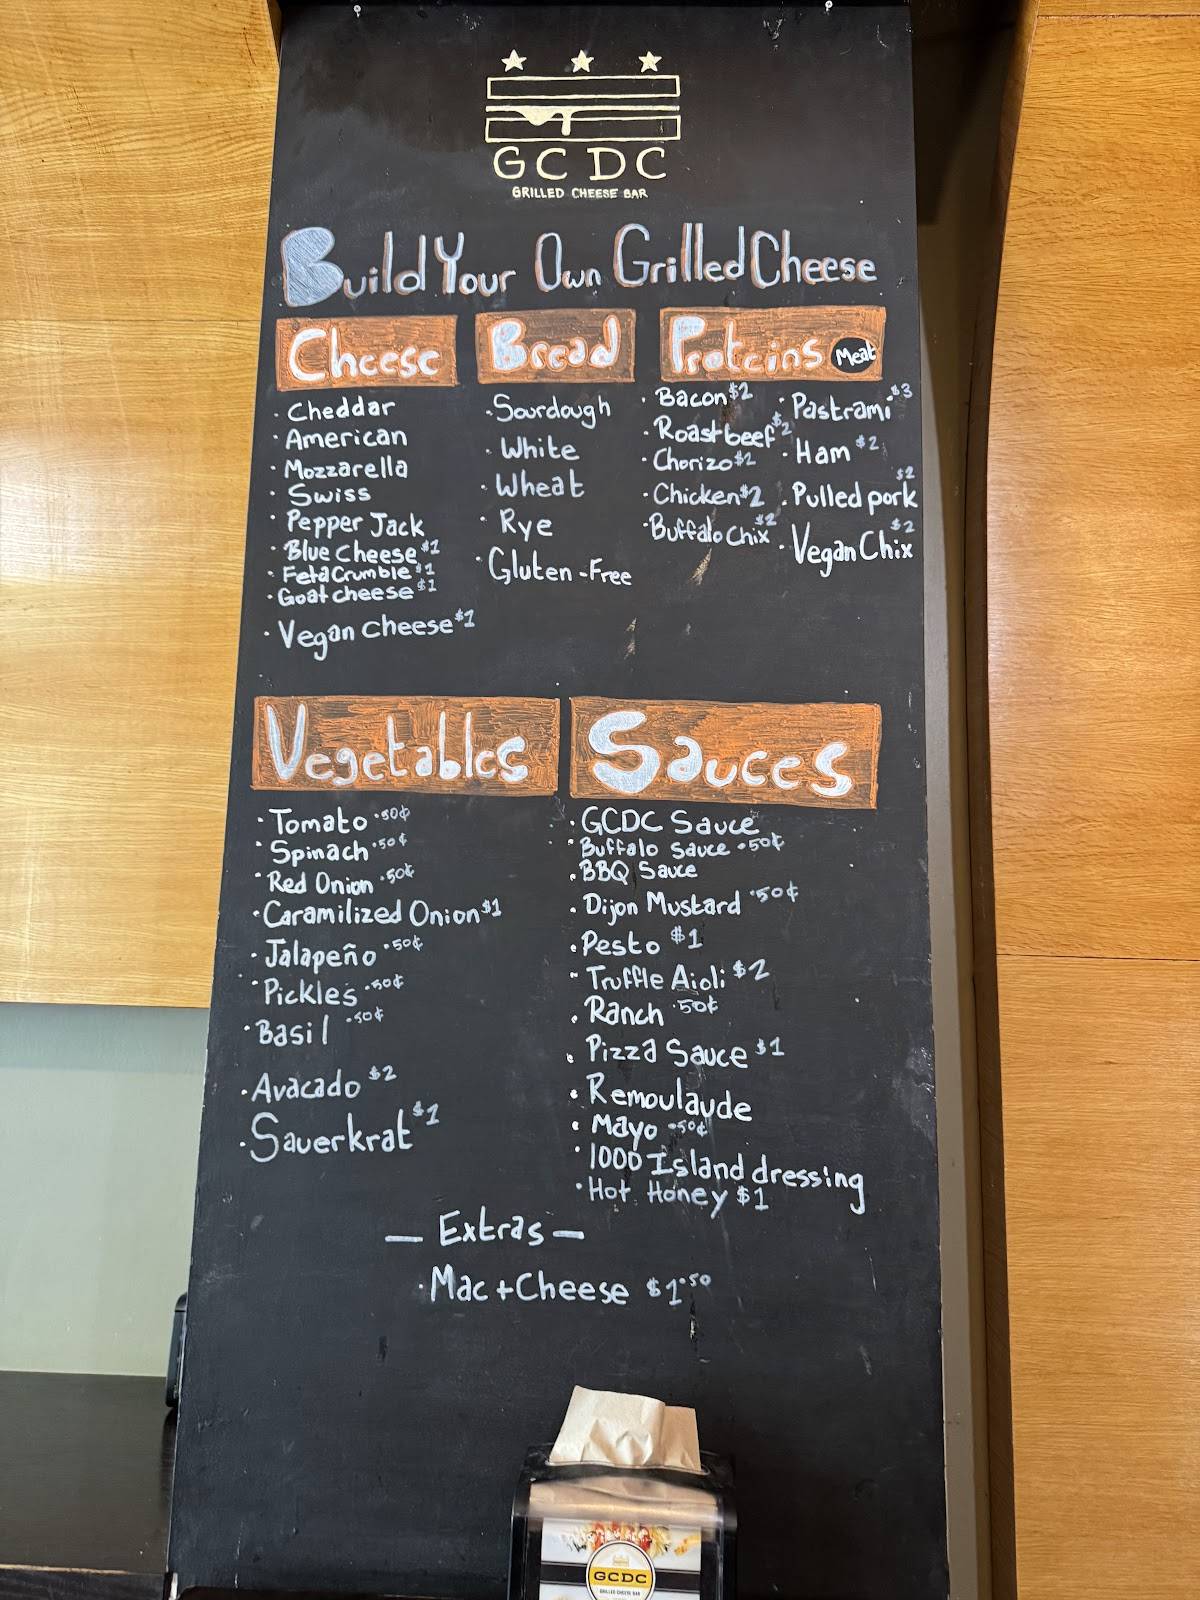 GCDC
GRILLED CHEESE BAR
Build Your Own Grilled Cheese
Cheese
· Cheddar
· American
· Mozzarella
· Swiss
· Pepper Jack
· Blue Cheese $1
· Feta Crumble $1
· Goat cheese $1
· Vegan Cheese $1
Bread
· Sourdough
· White
· Wheat
· Rye
· Gluten-Free
Proteins Meat
· Bacon $2
· Roast beef $2
· Chorizo $2
· Chicken $2
· Buffalo Chix $2
· Pastrami $3
· Ham $2
· Pulled pork $2
· Vegan Chix $2
Vegetables
· Tomato .50¢
· Spinach .50¢
· Red Onion .50¢
· Caramilized Onion $1
· Jalapeño .50¢
· Pickles .50¢
· Basil .50¢
· Avacado $2
· Sauerkrat $1
Sauces
· GCDC Sauce
· Buffalo Sauce .50¢
· BBQ Sauce
· Dijon Mustard .50¢
· Pesto $1
· Truffle Aioli $2
· Ranch .50¢
· Pizza Sauce $1
· Remoulaude
· Mayo .50¢
· 1000 Island dressing
· Hot Honey $1
— Extras —
· Mac + Cheese $1.50
GCDC
GRILLED CHEESE BAR